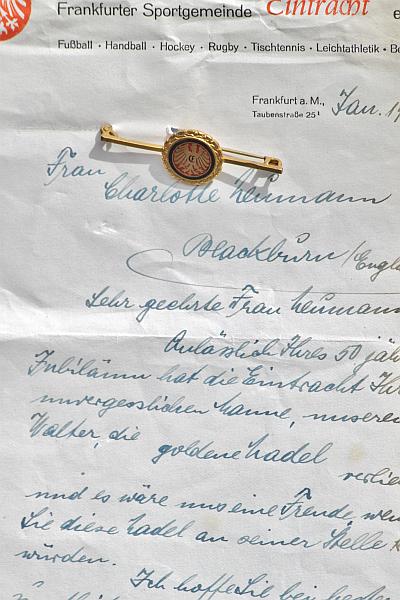 Frankfurter Sportgemeinde Eintracht e
Fußball · Handball · Hockey · Rugby · Tischtennis · Leichtathletik · Bo
Frankfurt a. M., Jan. 19
Taubenstraße 25 I
Frau
Charlotte Neumann
Blackburn / Engla
Sehr geehrte Frau Neumann
Anlässlich Ihres 50 jähr
Jubiläum hat die Eintracht Ihr
unvergesslichen Manne, unseren
Walter, die goldene Nadel
verlie
und es wäre uns eine Freude, wen
Sie diese Nadel an seiner Stelle
würden.
Ich hoffe Sie bei